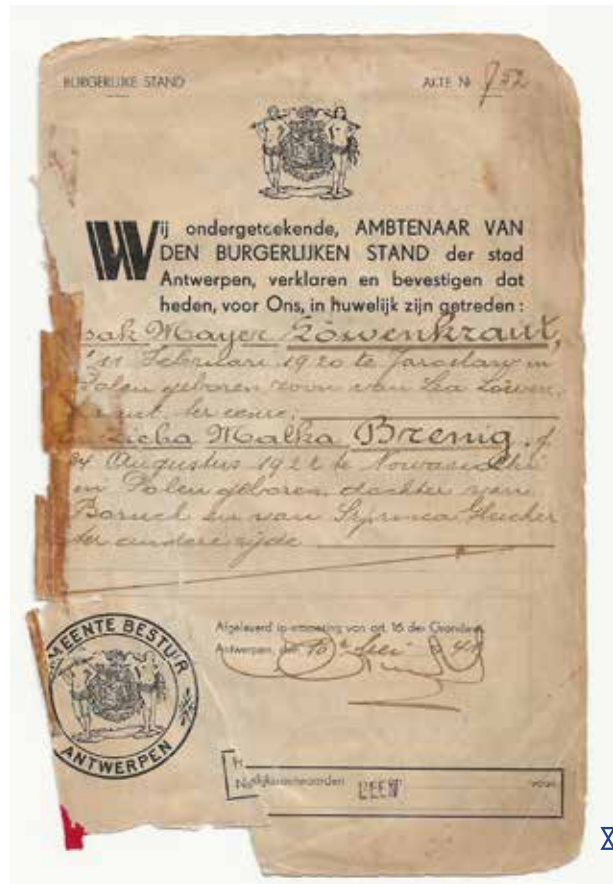 BURGERLIJKE STAND
AKTE Nr 752
Wij ondergeteekende, AMBTENAAR VAN
DEN BURGERLIJKEN STAND der stad
Antwerpen, verklaren en bevestigen dat
heden, voor Ons, in huwelijk zijn getreden :
Isak Mayer Löwenkraut,
11 Februari 1920 te Jaroslaw in
Polen geboren zoon van Lea Löwen-
kraut, ter eenre;
Malka Brenig,
24 Augustus 1922 te
in Polen geboren, dochter van
Baruch en van
ter andere zijde
Afgeleverd in uitvoering van art. 16 der Grondwet
Antwerpen, den 16 Mei
GEMEENTE BESTUUR
ANTWERPEN